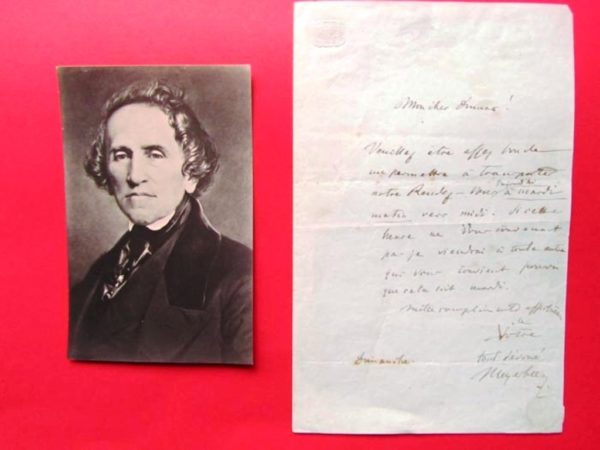 Mon cher Dumas!
Veuillez être assez bon de
me permettre à transporter
notre Rendez-Vous à mardi
matin vers midi. Si cette
heure ne Vous convenait
pas je viendrai à toute autre
qui vous convient pourvu
que cela soit mardi.
Mille compliments
Votre
Dimanche. tout dévoué
Meyerbeer